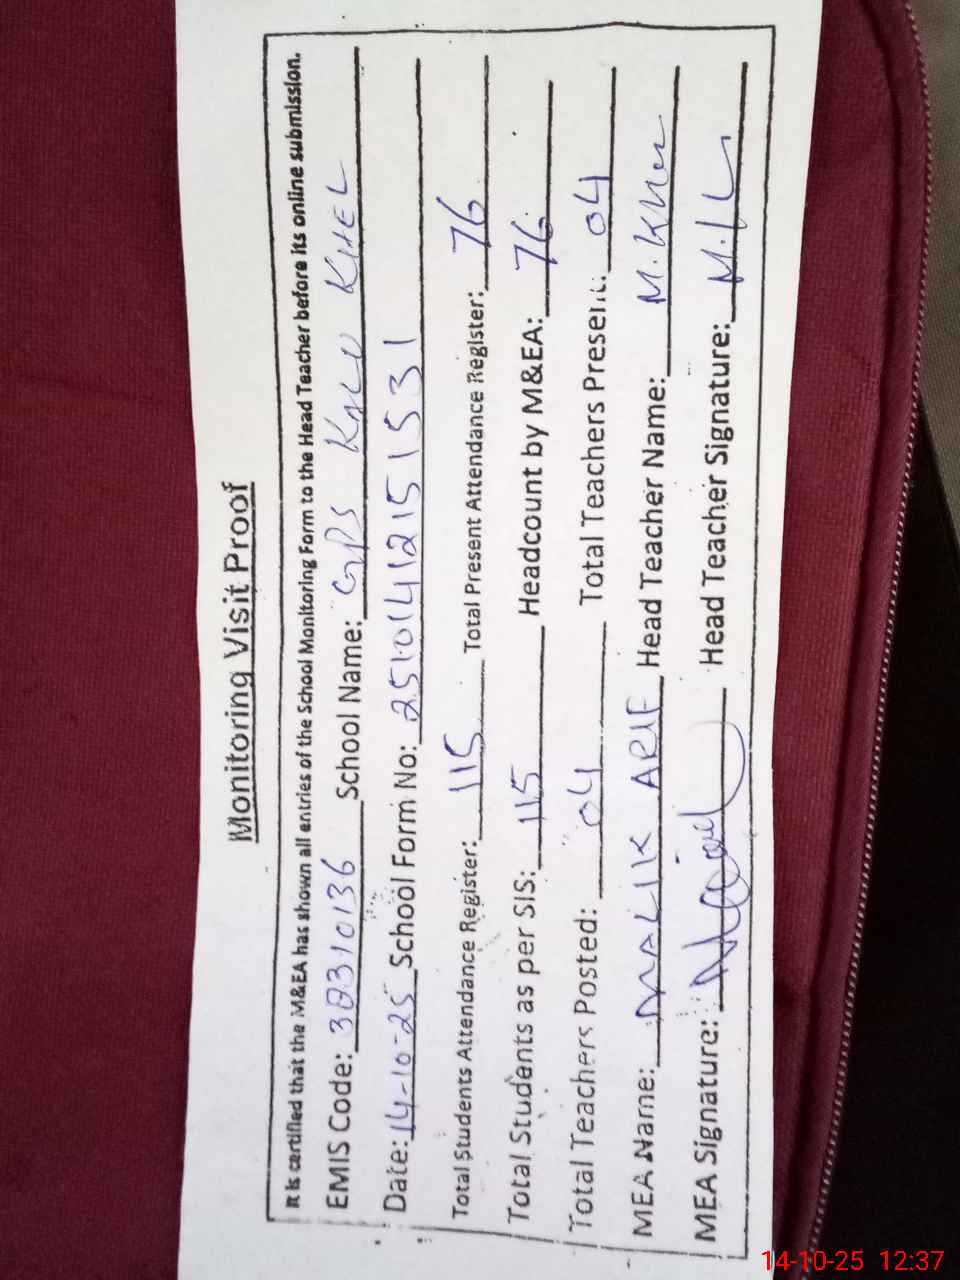 Monitoring Visit Proof
It is certified that the M&EA has shown all entries of the School Monitoring Form to the Head Teacher before its online submission.
EMIS Code: 38310136 School Name: GPS KALU KHEL
Date: 14-10-25 School Form No: 25101412151531
Total Students Attendance Register: 115 Total Present Attendance Register: 76
Total Students as per SIS: 115 Headcount by M&EA: 76
Total Teachers Posted: 04 Total Teachers Present: 04
MEA Name: MALIK ARIF Head Teacher Name: M. Khan
MEA Signature: Head Teacher Signature:
14-10-25 12:37